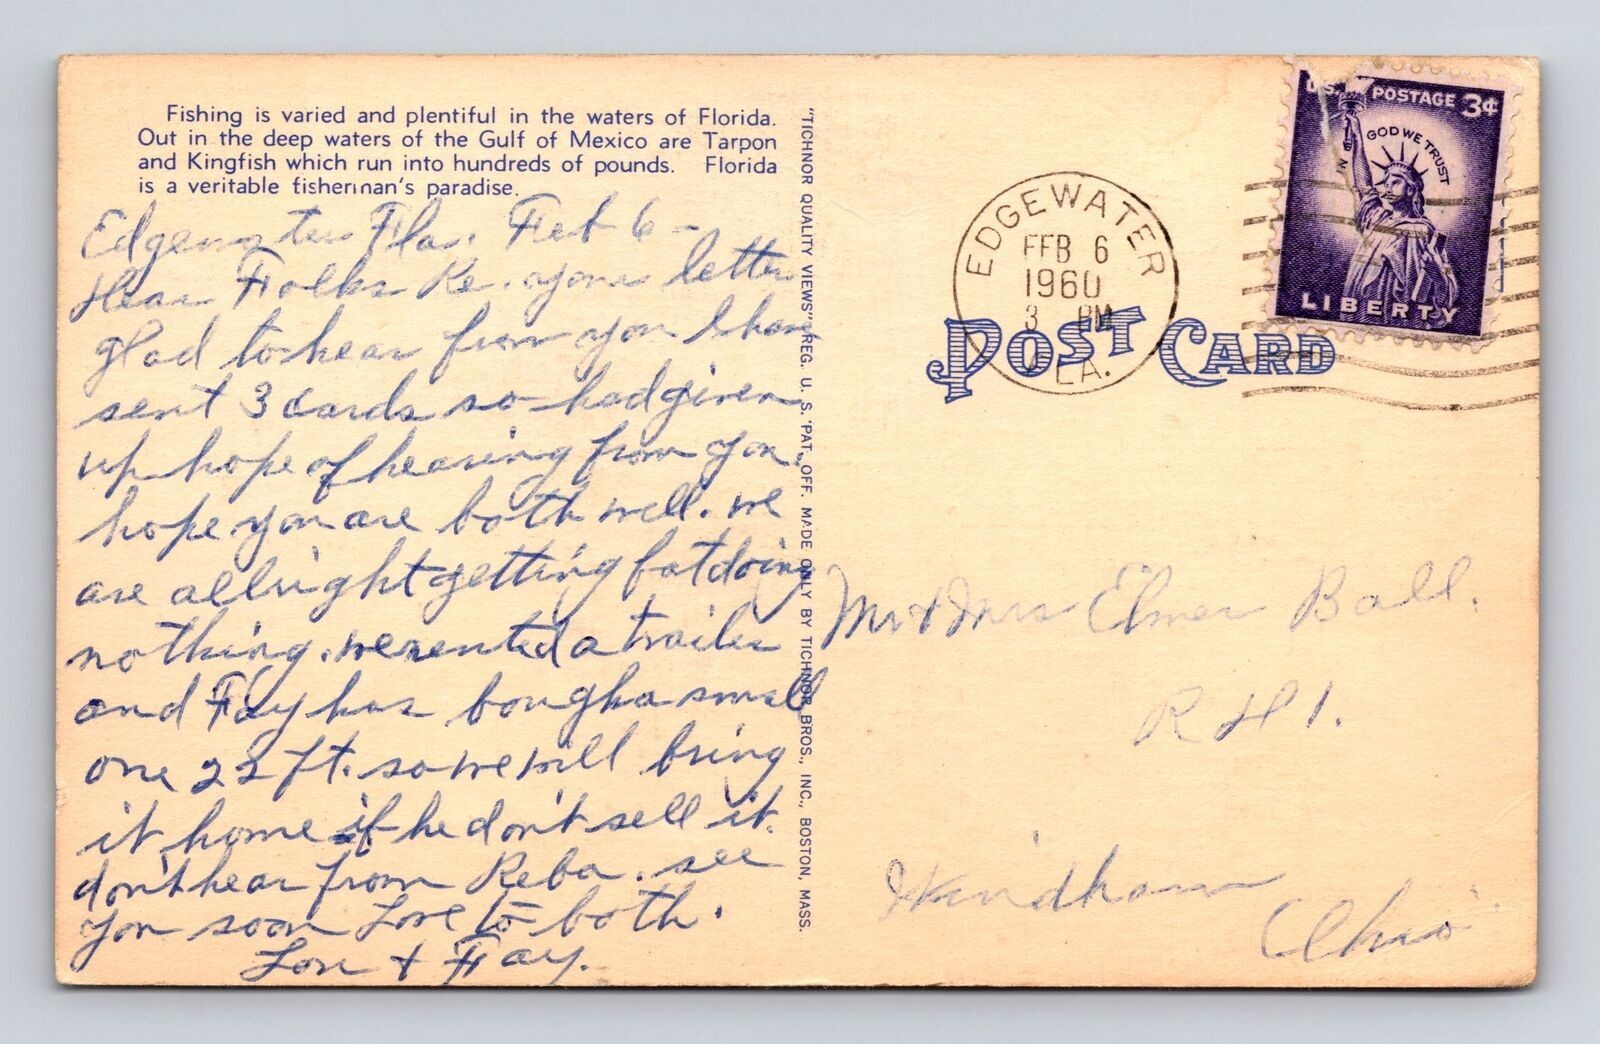 Fishing is varied and plentiful in the waters of Florida.
Out in the deep waters of the Gulf of Mexico are Tarpon
and Kingfish which run into hundreds of pounds. Florida
is a veritable fisherman's paradise.
Edgewater Fla. Feb 6 -
Dear Folks Re. your letter
glad to hear from you I have
sent 3 cards so had given
up hope of hearing from you.
hope you are both well. we
are allright getting fat doing
nothing. we rented a trailer
and Fay has bought a small
one 22 ft. so we will bring
it home if he don't sell it.
don't hear from Reba. see
you soon Love to both.
Lou + Fay.
"TICHNOR QUALITY VIEWS" REG. U. S. PAT. OFF. MADE ONLY BY TICHNOR BROS., INC., BOSTON, MASS.
EDGEWATER
FEB 6
1960
3 PM
FLA.
U.S. POSTAGE 3¢
IN GOD WE TRUST
LIBERTY
POST CARD
Mr + Mrs Elmer Ball.
R # 1.
Windham
Ohio